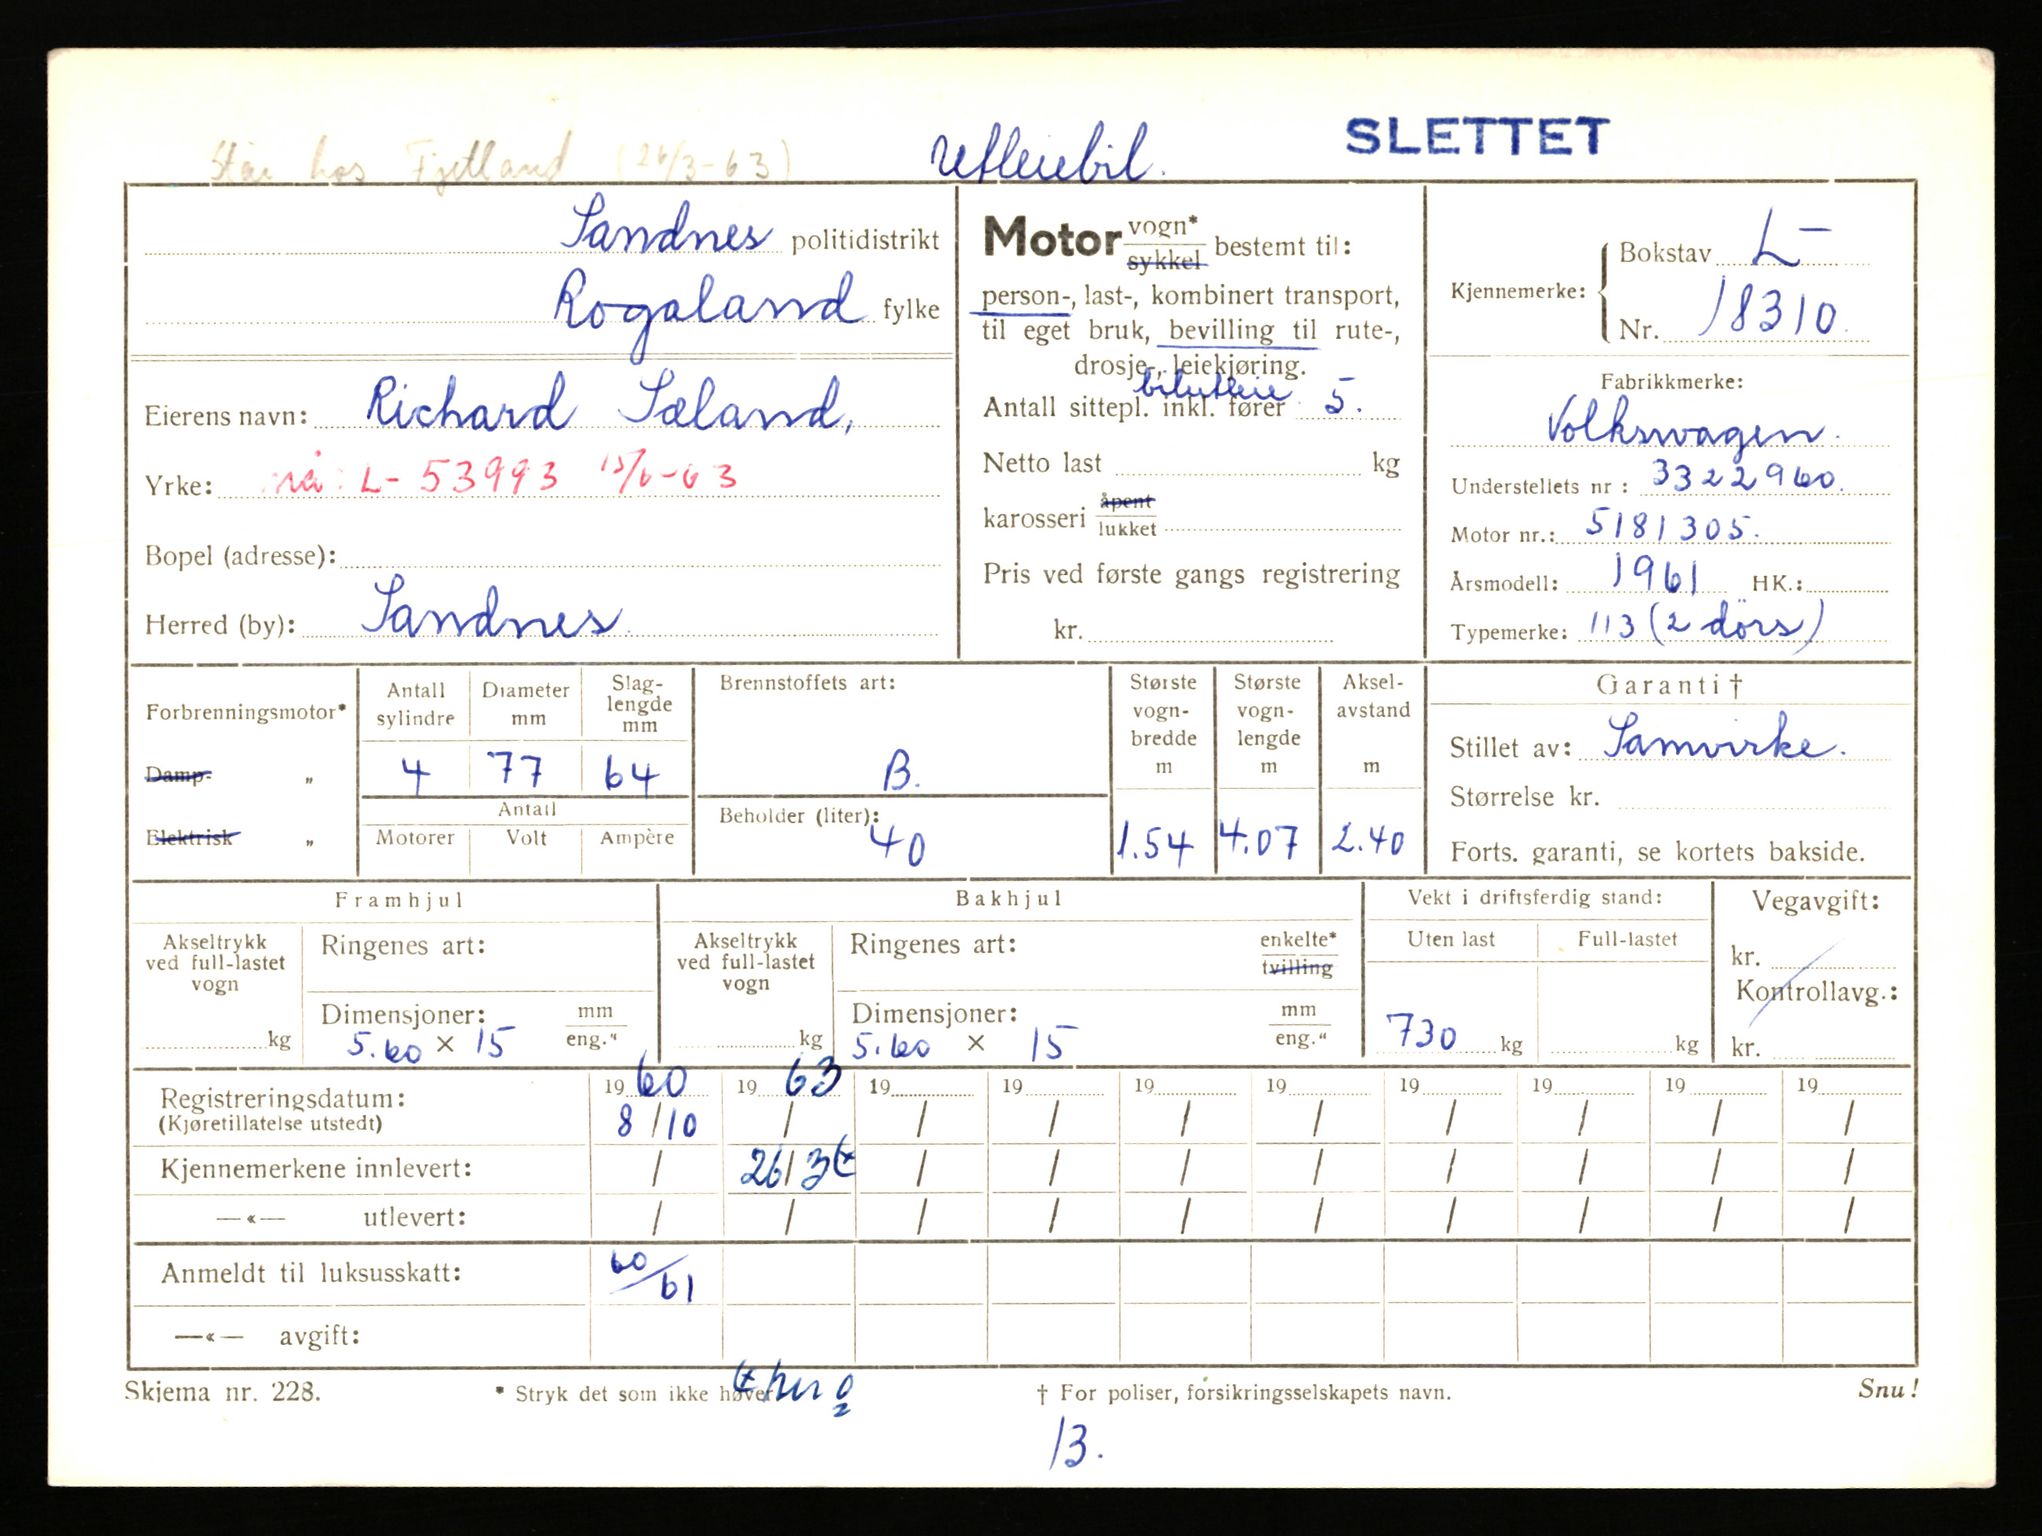 SLETTET
Står hos Fjetland (26/3-63)
Utleiebil.
Sandnes politidistrikt
Rogaland fylke
Eierens navn: Richard Sæland,
Yrke: nå: L- 53993 15/6-63
Bopel (adresse):
Herred (by): Sandnes.
Motor vogn* sykkel bestemt til:
person-, last-, kombinert transport,
til eget bruk, bevilling til rute-,
drosje-, leiekjøring.
bilutleie
Antall sittepl. inkl. fører 5.
Netto last kg
karosseri åpent lukket
Pris ved første gangs registrering
kr.
Kjennemerke: Bokstav L-
Nr. 18310.
Fabrikkmerke:
Volkswagen.
Understellets nr: 3322960.
Motor nr.: 5181305.
Årsmodell: 1961 HK.:
Typemerke: 113 (2 dörs)
Forbrenningsmotor*
Damp- „
Elektrisk „
Antall sylindre
4
Diameter mm
77
Slag-lengde mm
64
Antall
Motorer Volt Ampère
Brennstoffets art:
B.
Beholder (liter):
40
Største vogn-bredde m
1.54
Største vogn-lengde m
4.07
Aksel-avstand m
2.40
Garanti †
Stillet av: Samvirke.
Størrelse kr.
Forts. garanti, se kortets bakside.
Framhjul
Akseltrykk ved full-lastet vogn
kg
Ringenes art:
Dimensjoner: mm eng."
5.60 × 15
Bakhjul
Akseltrykk ved full-lastet vogn
kg
Ringenes art: enkelte* tvilling
Dimensjoner: mm eng."
5.60 × 15
Vekt i driftsferdig stand:
Uten last Full-lastet
730 kg kg
Vegavgift:
kr.
Kontrollavg.:
kr.
19 60 19 63 19 19 19 19 19 19 19 19
Registreringsdatum: 8/10 / / / / / / / / /
(Kjøretillatelse utstedt)
Kjennemerkene innlevert: / 26/3 / / / / / / / /
—«— utlevert: / / / / / / / / / /
Anmeldt til luksusskatt: 60/61
—«— avgift:
Skjema nr. 228.
* Stryk det som ikke høver
† For poliser, forsikringsselskapets navn.
Snu!
13.